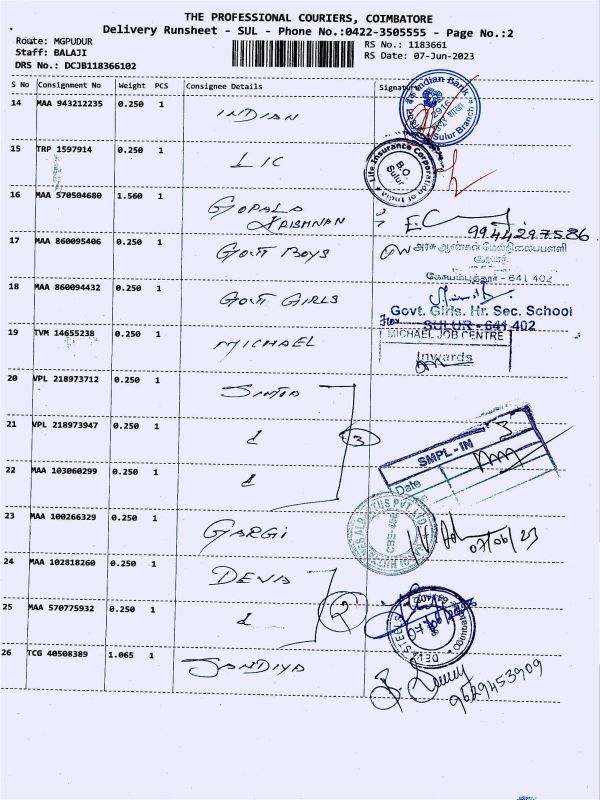 THE PROFESSIONAL COURIERS, COIMBATORE
Delivery Runsheet - SUL - Phone No.:0422-3505555 - Page No.:2
Route: MGPUDUR
RS No.: 1183661
Staff: BALAJI
RS Date: 07-Jun-2023
DRS No.: DCJB118366102
S No Consignment No Weight PCS Consignee Details Signature
14 MAA 943212235 0.250 1 INDIAN
Indian Bank
Sulur Branch
15 TRP 1597914 0.250 1 LIC
Life Insurance Corporation of India
B.O.
Sulur
16 MAA 570504680 1.560 1 GOPALA
KRISHNAN
9944297586
17 MAA 860095406 0.250 1 GOVT BOYS
அரசு ஆண்கள் மேல்நிலைப்பள்ளி
சூலூர்
கோயம்புத்தூர் - 641 402
18 MAA 860094432 0.250 1 GOVT GIRLS
Govt. Girls. Hr. Sec. School
SULUR - 641 402
19 TVM 14655238 0.250 1 MICHAEL
MICHAEL JOB CENTRE
Inwards
20 VPL 218973712 0.250 1
21 VPL 218973947 0.250 1
3
22 MAA 103060299 0.250 1
SMPL - IN
Date
23 MAA 100266329 0.250 1 GARGI
07/06/23
24 MAA 102818260 0.250 1 DEVA
2
25 MAA 570775932 0.250 1
DEVA STEELS
Coimbatore
26 TCG 40508389 1.065 1 SANDIYA
9629453909